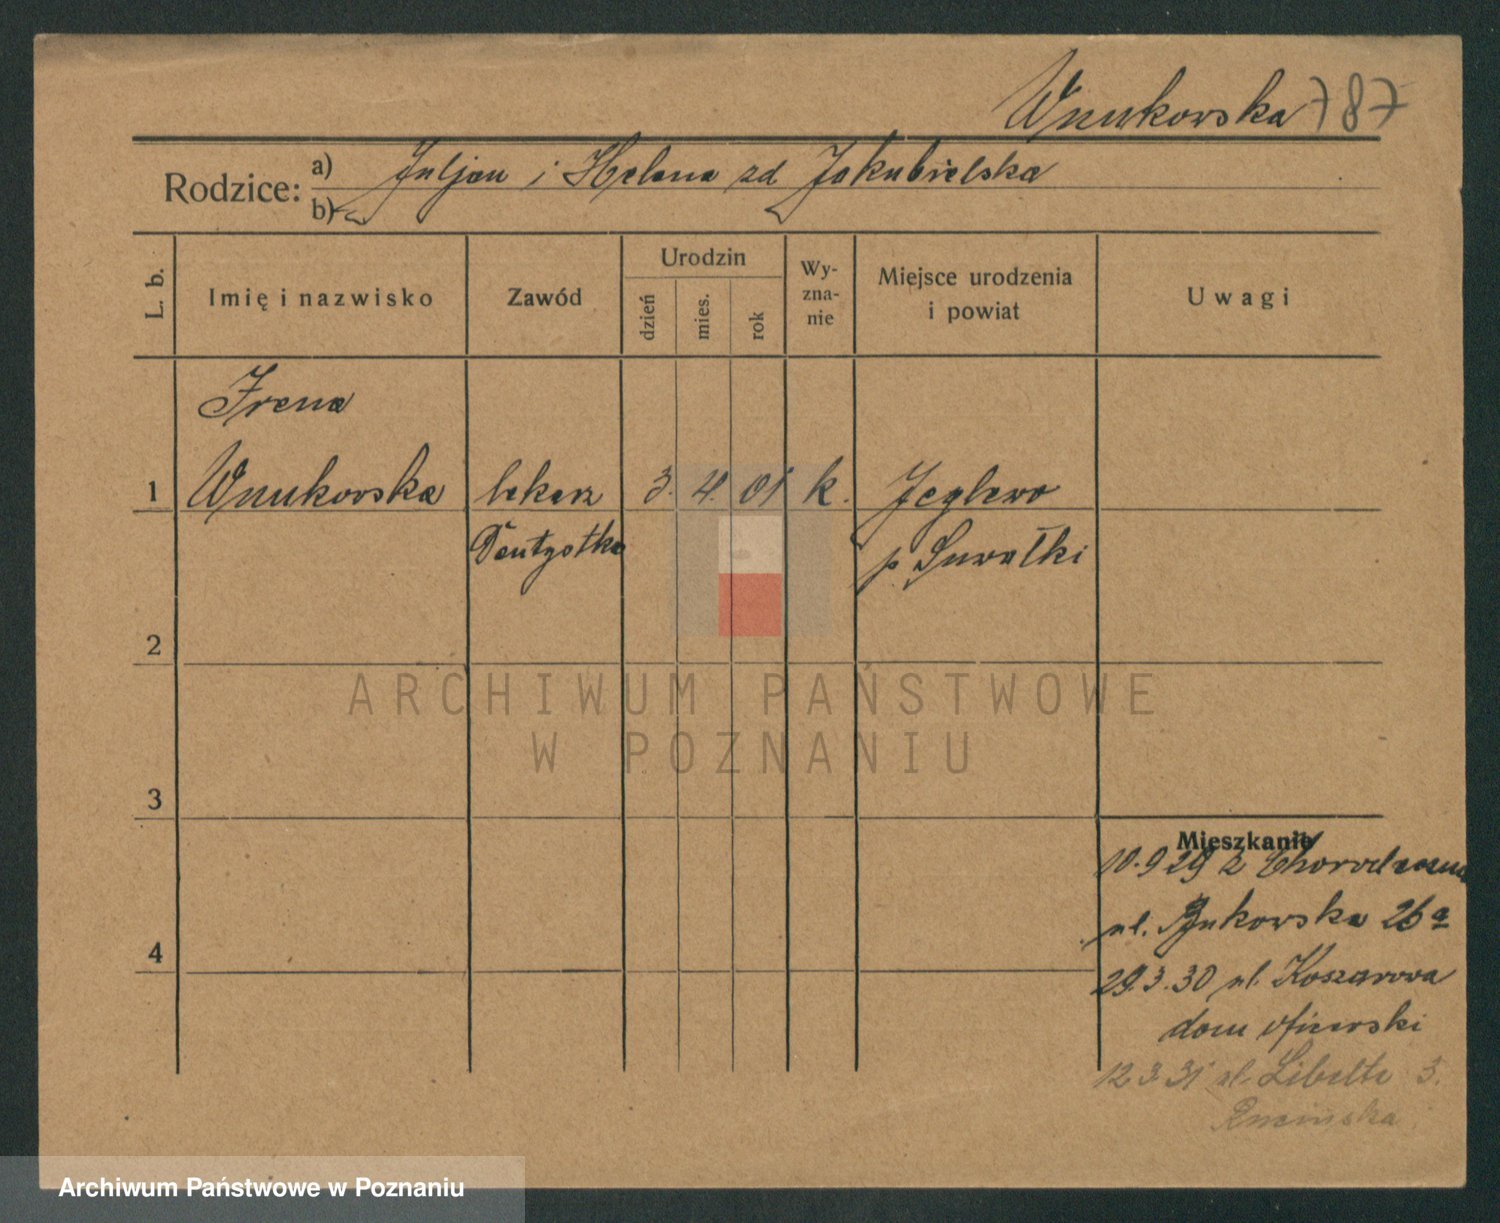 Wnukowska 787
Rodzice: a) Juljan i Helena zd Jakubielska
b)
L. b.
Imię i nazwisko
Zawód
Urodzin
dzień
mies.
rok
Wy-
zna-
nie
Miejsce urodzenia
i powiat
Uwagi
Irena
1 Wnukowska lekarz 3. 4. 01 k. Jeglewo
Dentystka p. Suwałki
2
ARCHIWUM PAŃSTWOWE
W POZNANIU
3
Mieszkanie
10.9 29 z
ul. Bukowska 26a
4
29.3.30 ul. Koszarowa
dom oficerski
12.3.31 ul. Libelta 3.
Archiwum Państwowe w Poznaniu